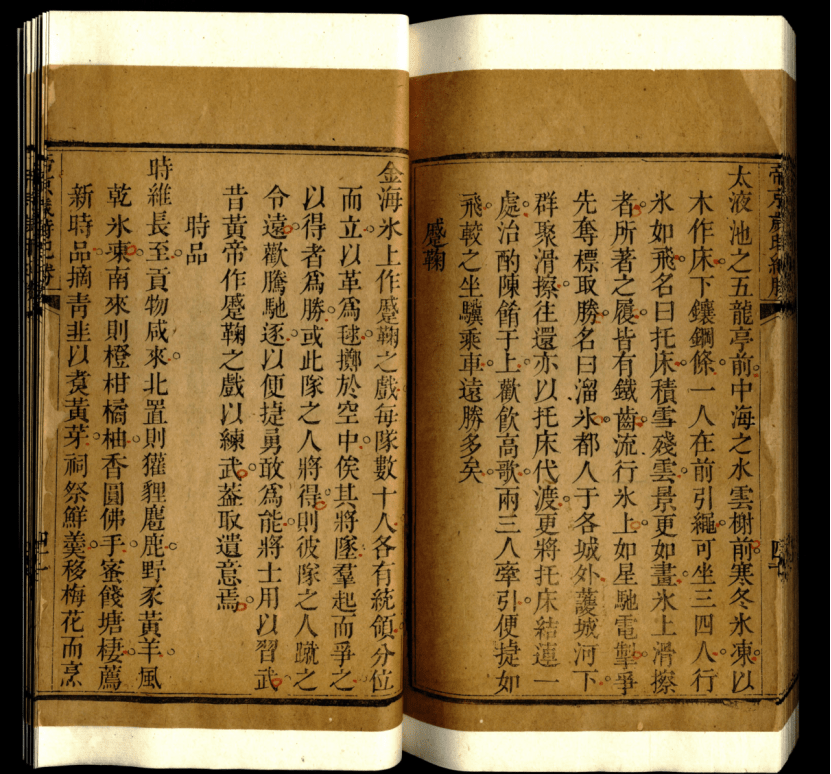 帝京歲時紀勝
太液池之五龍亭前中海之水雲榭前寒冬氷凍以
木作床下鑲鋼條一人在前引繩可坐三四人行
氷如飛名曰托床積雪殘雲景更如畫氷上滑擦
者所著之履皆有鐵齒流行氷上如星馳電掣爭
先奪標取勝名曰溜氷都人于各城外護城河下
群聚滑擦往還亦以托床代渡更將托床結連一
處治酌陳餚于上歡飲高歌兩三人牽引便捷如
飛較之坐驥乘車遠勝多矣
蹙鞠
金海氷上作蹙鞠之戲每隊數十人各有統領分位
而立以革爲毬擲於空中俟其將墜羣起而爭之
以得者爲勝或此隊之人將得則彼隊之人蹴之
令遠歡騰馳逐以便捷勇敢爲能將士用以習武
昔黃帝作蹙鞠之戲以練武葢取遺意焉
時品
時維長至貢物咸來北置則獾貍麅鹿野豕黃羊風
乾氷凍南來則橙柑橘柚香圓佛手蜜餞塘棲薦
新時品摘青韭以煮黃芽祠祭鮮羹移梅花而烹